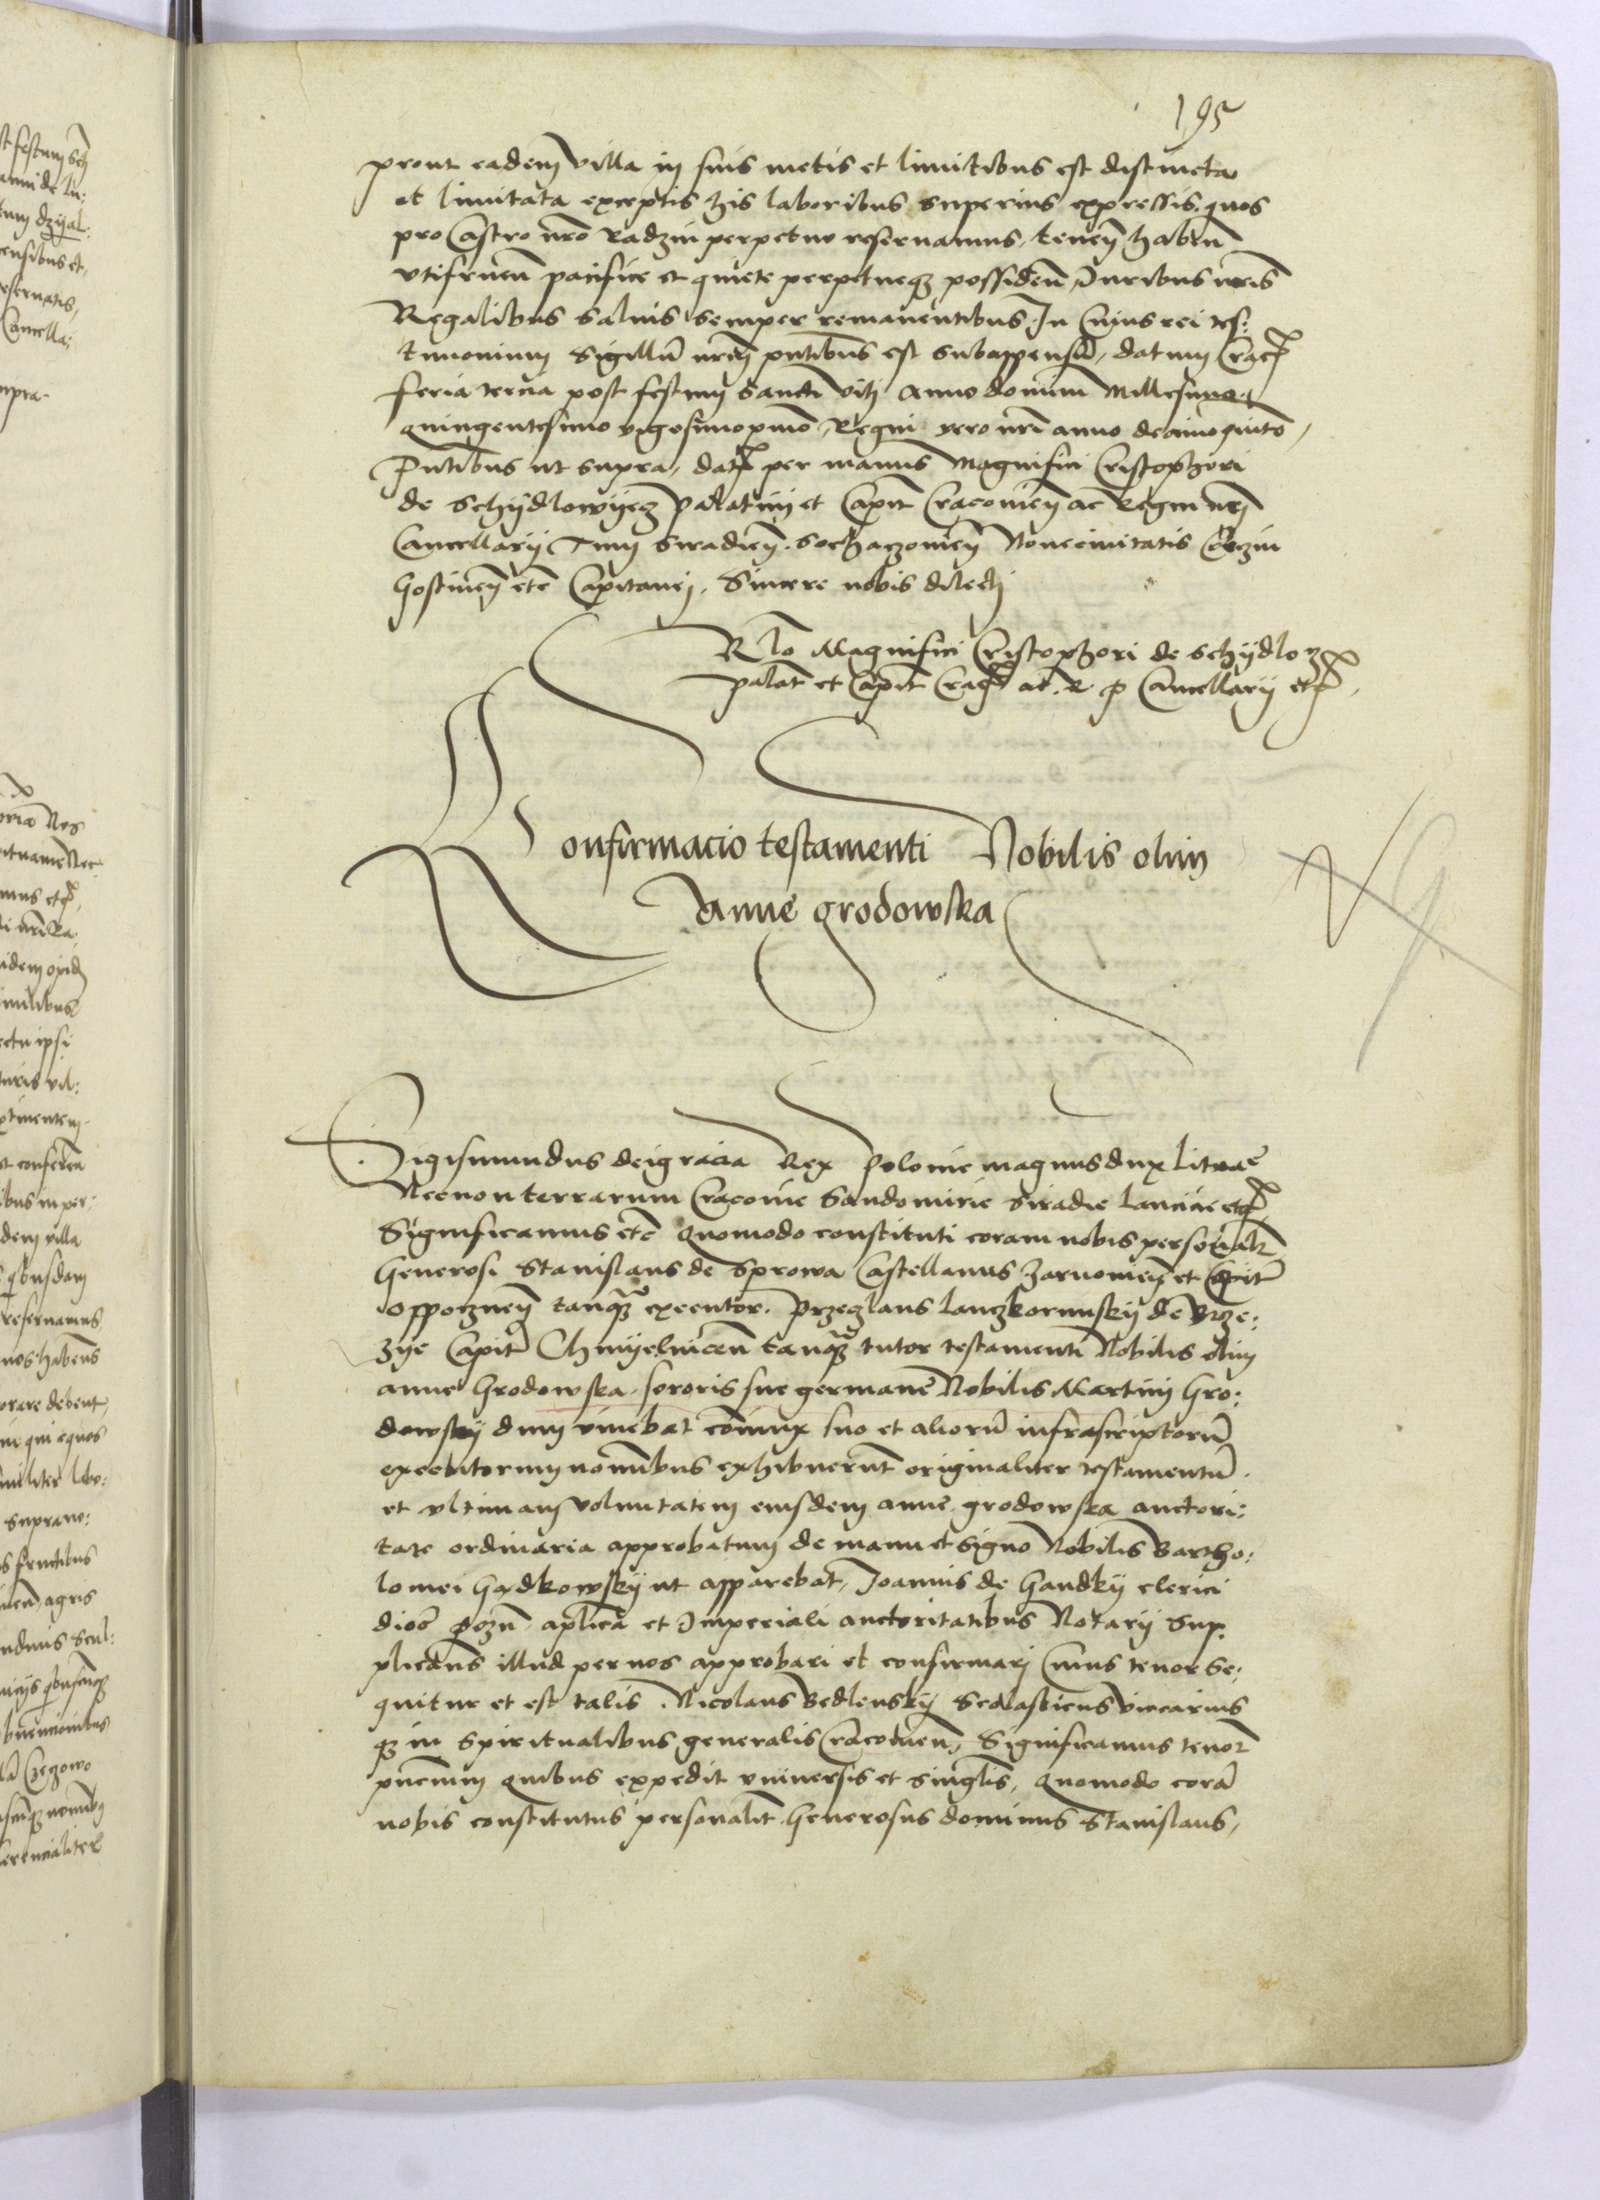 195
prout eadem villa in suis metis et limitibus est distincta
et limitata exceptis his laboribus superius expressis quos
pro Castro nro Radzin perpetuo reservamus, tenen haben
utifruen pacifice et quiete perpetueq possiden, Juribus nris
Regalibus salvis semper remanentibus. In Cuius rei tes:
timonium Sigillu nrm pntibus est subappensu, datum Crac
feria tercia post festum sancti viti Anno domini Millesimo
quingentesimo vigesimoprimo, Regni vero nri anno decimoquinto,
Pntibus ut supra, dat per manus Magnifici Cristophori
de Schydlowyecz palatini et Capit Cracovien ac Regni nri
Cancellarij Tum Siradien. Sochaczovien Novecivitatis Corczin
Gostinen etc Capitanei. Sincere nobis dilecti
Rlo Magnifici Cristophori de Schydlo
palat et Capit Crac ac. R. p Cancellarij etc,
Confirmacio testamenti Nobilis olim
Anne grodowska
Sigismundus dei gracia Rex Polonie magnus dux Lituae
Necnon terrarum Cracovie Sandomirie Siradie Lancicie etc
Significamus etc Quomodo constituti coram nobis personalr
Generosi Stanislaus de Sprowa Castellanus Zarnovien et Capit
Oppocznen tanq executor. Przeczlaus Lanczkorunsky de Brze:
zye Capit Chmyelnicen tanq tutor testamenti Nobilis olim
anne Grodowska, sororis sue germane Nobilis Martini Gro:
dowsky dum vivebat coniux suo et alioru infrascriptoru
executorum nominibus exhibuerunt originaliter testamentu.
et ultimam voluntatem eiusdem anne grodowska auctori:
tate ordinaria approbatum de manu et signo Nobilis Bartho:
lomei Gadkowsky ut apparebat, Joannis de Gandky clerici
dioc Pozn. aplica et Imperiali auctoritatibus Notarij Sup
plicans illud per nos approbari et confirmari Cuius tenor se:
quitur et est talis. Nicolaus Bedlensky Scolasticus vicarius
q in Spiritualibus generalis Cracovien, Significamus tenor
pncium quibus expedit universis et singlis, Quomodo cora
nobis constitutus personalit Generosus dominus Stanislaus,